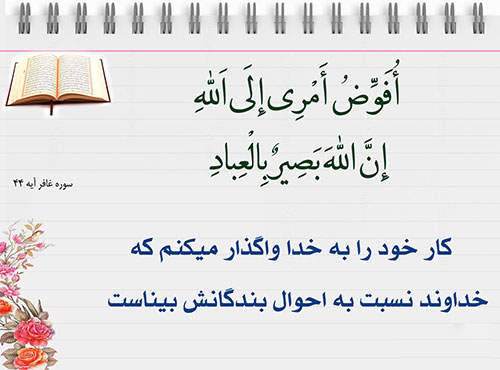 أُفَوِّضُ أَمْرِی إِلَی اَللّٰهِ
إِنَّ اللّٰهَ بَصِیرٌ بِالْعِبادِ
سوره غافر آیه ۴۴
کار خود را به خدا واگذار میکنم که
خداوند نسبت به احوال بندگانش بیناست